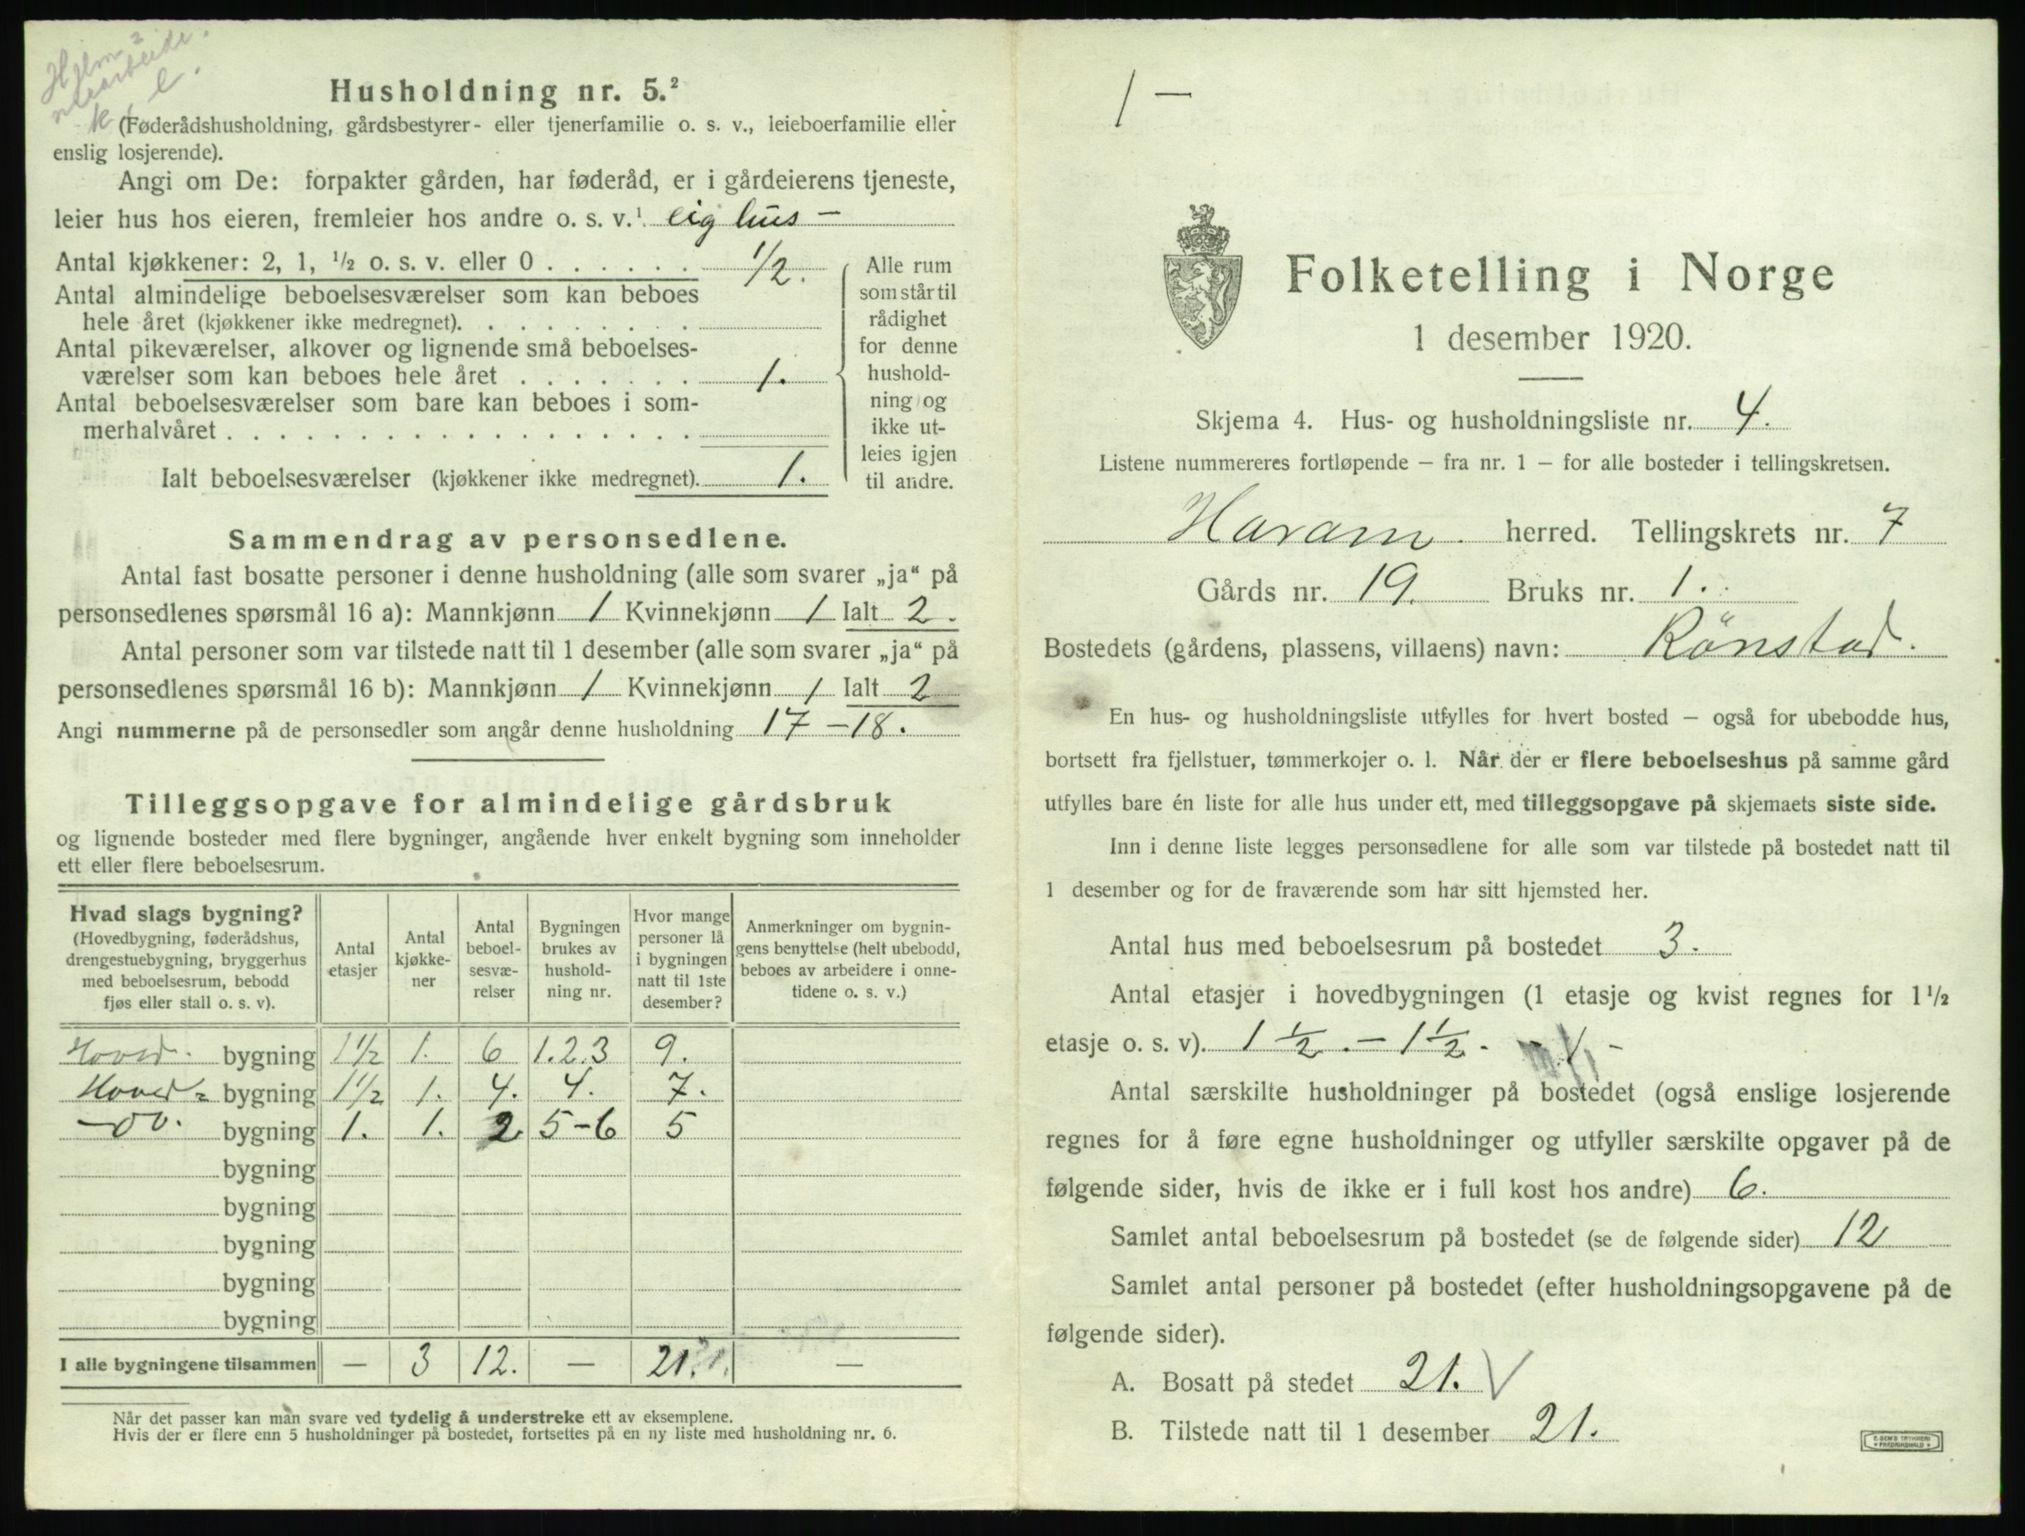 Husholdning nr. 5.²
(Føderådshusholdning, gårdsbestyrer- eller tjenerfamilie o. s. v., leieboerfamilie eller
enslig losjerende).
Angi om De: forpakter gården, har føderåd, er i gårdeierens tjeneste,
leier hus hos eieren, fremleier hos andre o. s. v.¹ eig hus —
Antal kjøkkener: 2, 1, ½ o. s. v. eller 0 . . . . . . ½.
Antal almindelige beboelsesværelser som kan beboes
hele året (kjøkkener ikke medregnet). . . . . . . . .
Antal pikeværelser, alkover og lignende små beboelses-
værelser som kan beboes hele året . . . . . . . 1.
Antal beboelsesværelser som bare kan beboes i som-
merhalvåret . . . . . . . . . . . . . . . . .
Ialt beboelsesværelser (kjøkkener ikke medregnet). 1.
Alle rum
som står til
rådighet
for denne
hushold-
ning og
ikke ut-
leies igjen
til andre.
Sammendrag av personsedlene.
Antal fast bosatte personer i denne husholdning (alle som svarer „ja“ på
personsedlenes spørsmål 16 a): Mannkjønn 1 Kvinnekjønn 1 Ialt 2.
Antal personer som var tilstede natt til 1 desember (alle som svarer „ja“ på
personsedlenes spørsmål 16 b): Mannkjønn 1 Kvinnekjønn 1 Ialt 2
Angi nummerne på de personsedler som angår denne husholdning 17 – 18.
Tilleggsopgave for almindelige gårdsbruk
og lignende bosteder med flere bygninger, angående hver enkelt bygning som inneholder
ett eller flere beboelsesrum.
Hvad slags bygning? (Hovedbygning, føderådshus, drengestuebygning, bryggerhus med beboelsesrum, bebodd fjøs eller stall o. s. v). | Antal etasjer | Antal kjøkke- ner | Antal beboel- sesvæ- relser | Bygningen brukes av hushold- ning nr. | Hvor mange personer lå i bygningen natt til 1ste desember? | Anmerkninger om bygnin- gens benyttelse (helt ubebodd, beboes av arbeidere i onne- tidene o. s. v.)
Hoved. bygning 1½ 1. 6 1.2.3 9.
Hoved = bygning 1½ 1. 4. 4. 7.
—oo. bygning 1. 1. 2 5–6 5
bygning
bygning
bygning
bygning
bygning
I alle bygningene tilsammen — 3 12. — 21. —
Når det passer kan man svare ved tydelig å understreke ett av eksemplene.
Hvis der er flere enn 5 husholdninger på bostedet, fortsettes på en ny liste med husholdning nr. 6.
1 —
Folketelling i Norge
1 desember 1920.
Skjema 4. Hus- og husholdningsliste nr. 4.
Listene nummereres fortløpende – fra nr. 1 – for alle bosteder i tellingskretsen.
Haram. herred. Tellingskrets nr. 7
Gårds nr. 19. Bruks nr. 1.
Bostedets (gårdens, plassens, villaens) navn: Rönstad.
En hus- og husholdningsliste utfylles for hvert bosted – også for ubebodde hus,
bortsett fra fjellstuer, tømmerkojer o. l. Når der er flere beboelseshus på samme gård
utfylles bare én liste for alle hus under ett, med tilleggsopgave på skjemaets siste side.
Inn i denne liste legges personsedlene for alle som var tilstede på bostedet natt til
1 desember og for de fraværende som har sitt hjemsted her.
Antal hus med beboelsesrum på bostedet 3.
Antal etasjer i hovedbygningen (1 etasje og kvist regnes for 1½
etasje o. s. v). 1½. – 1½. - 1 –
Antal særskilte husholdninger på bostedet (også enslige losjerende
regnes for å føre egne husholdninger og utfyller særskilte opgaver på de
følgende sider, hvis de ikke er i full kost hos andre) 6.
Samlet antal beboelsesrum på bostedet (se de følgende sider) 12
Samlet antal personer på bostedet (efter husholdningsopgavene på de
følgende sider).
A. Bosatt på stedet 21. √
B. Tilstede natt til 1 desember 21.